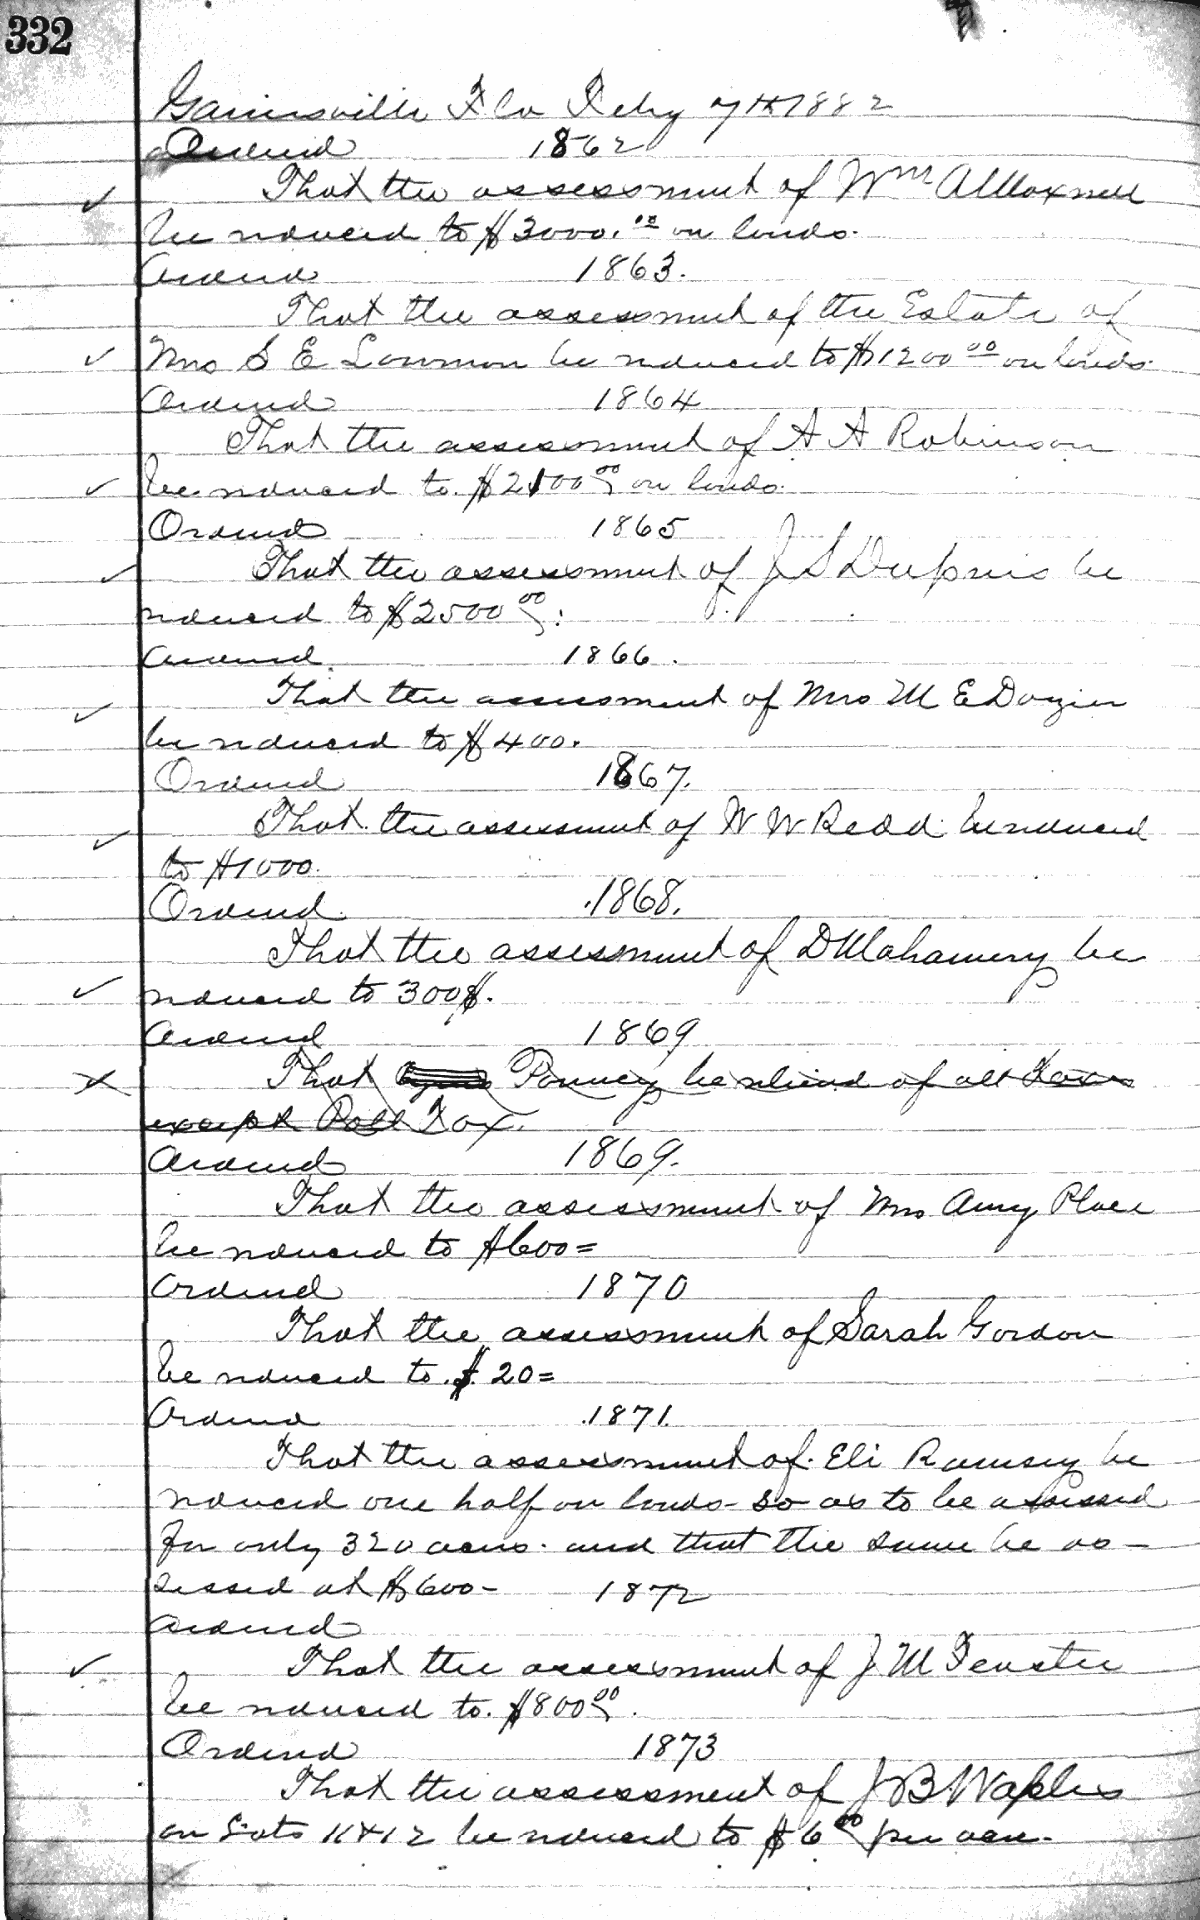 332
Gainesville Fla Feby 7th 1882
Ordered 1862
That the assessment of Wm A Maxwell
be reduced to $3000.00 on lands.
Ordered 1863.
That the assessment of the Estate of
Mrs S E Lowman be reduced to $1200 00 on lands.
Ordered 1864
That the assessment of A A Robinson
be reduced to $2100 00 on lands.
Ordered 1865
That the assessment of J S Dupuis be
reduced to $2500 00.
Ordered. 1866.
That the assessment of Mrs M E Dozier
be reduced to $400.
Ordered 1867.
That the assessment of W W Redd be reduced
to $1000.
Ordered 1868.
That the assessment of D Mahaney be
reduced to 300$.
Ordered 1869
That Pouncey be relieved of all Taxes
except Poll Tax.
Ordered 1869.
That the assessment of Mrs Amy Place
be reduced to $600=
Ordered 1870
That the assessment of Sarah Gordon
be reduced to $20=
Ordered 1871.
That the assessment of Eli Ramsey be
reduced one half on lands - so as to be assessed
for only 320 acres. and that the same be as-
sessed at $600- 1872
Ordered
That the assessment of J M Feaster
be reduced to. $800 00.
Ordered 1873
That the assessment of J B Waples
on Lots 11 & 12 be reduced to $6 00 per acre.